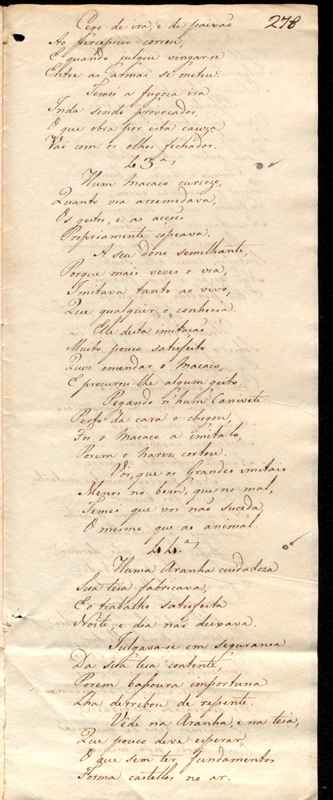 278
Cego de ira, e de paixão
Ao percipicio correu,
E quando julgou vingar-se
Entre as armas se meteu.
Temei a fugoza ira
Inda sendo provocados
O que obra por esta cauza
Vai com os olhos fechados.
43.ª
Hum Macaco curiozo,
Quanto via arremedava,
Os gestos, e as acções
Propriamente copeava.
A seu dono semelhante,
Porque mais vezes o via,
Imitava tanto ao vivo,
Que qualquer o conhecia.
Elle desta imitação
Muito pouco satisfeito
Quiz emendar o Macaco,
E procurou-lhe algum geito
Pegando n'hum Canivete
Perto da cara o chegou,
Foi o Macaco a imitalo,
Porem o Nariz cortou.
Vós, que os Grandes imitais
Menos no bem, que no mal,
Temei que vos não suceda,
O mesmo que ao animal
44.ª
Huma Aranha cuidadoza
Sua teia fabricava,
E o trabalho satisfeita
Noite, e dia não deixava.
Julgava-se em segurança
Da sua teia contente
Porem baçoura importuna
Lha derrebou de repente.
Vêde na Aranha, e na teia,
Que pouco deve esperar,
O que sem ter fundamentos
Forma castellos no ar.